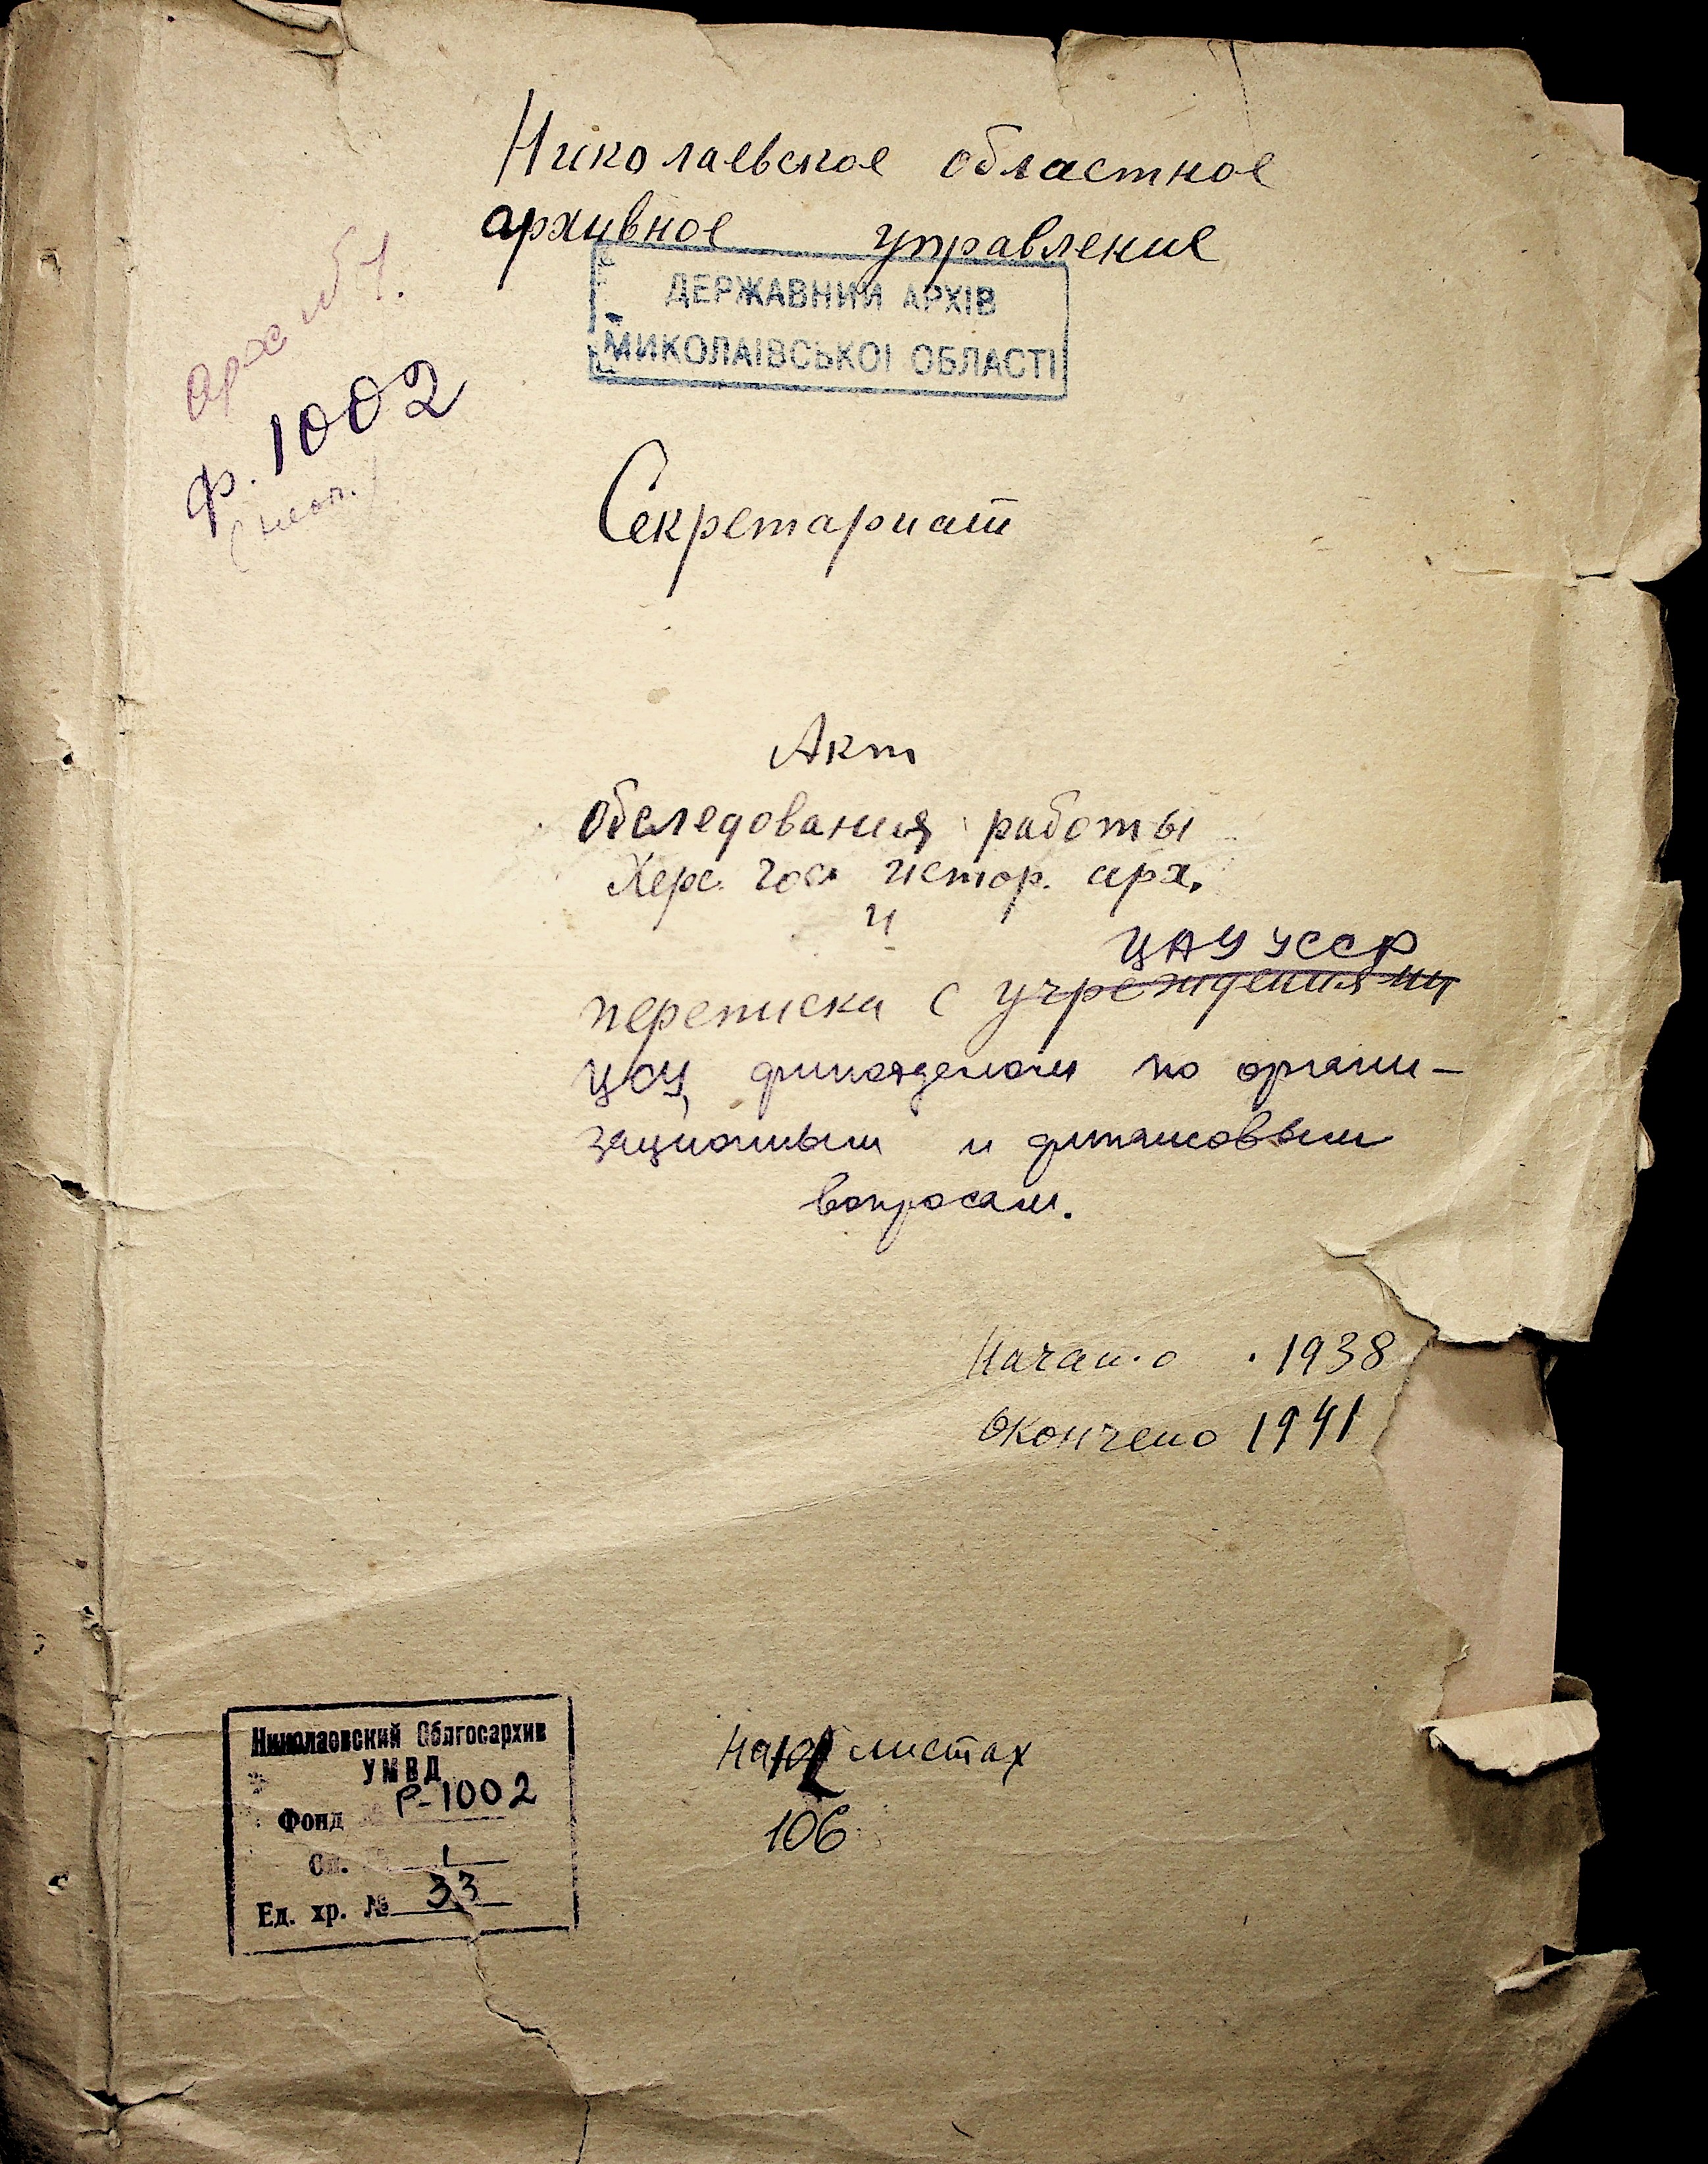 Николаевское областное
архивное управление
ДЕРЖАВНИЙ АРХІВ
МИКОЛАЇВСЬКОЇ ОБЛАСТІ
ф. 1002
Секретариат
Акт
Обследования работы
Херс. гос. истор. арх.
и
ЦАУ УССР
переписка с учреждениями
финотделом по органи-
зационным и финансовым
вопросам.
Начато 1938
Окончено 1941
Николаевский Облгосархив
УМВД
Фонд № Р-1002
Оп. № 1
Ед. хр. № 33
На листах
106